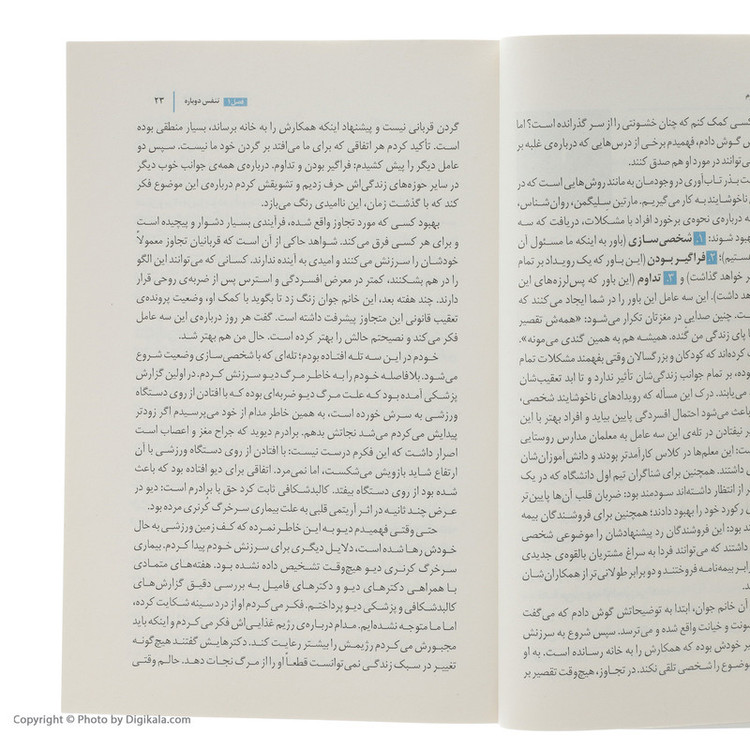 م
کسی کمک کنم که چنان خشونتی را از سر گذرانده است؟ اما
ش گوش دادم، فهمیدم برخی از درس‌هایی که درباره‌ی غلبه بر
می‌توانند در مورد او هم صدق کنند.
ت بذر تاب‌آوری در وجودمان به مانند روش‌هایی است که در
ناخوشایند به کار می‌گیریم. مارتین سلیگمن، روان‌شناس،
ه درباره‌ی نحوه‌ی برخورد افراد با مشکلات، دریافت که سه
بهبود شوند: ۱. شخصی‌سازی (باور به اینکه ما مسئول آن
ستیم)؛ ۲. فراگیر بودن (این باور که یک رویداد بر تمام
ر خواهد گذاشت) و ۳. تداوم (این باور که پس‌لرزه‌های این
هد داشت). این سه عامل این باور را در شما ایجاد می‌کنند که
ست. چنین صدایی در مغزتان تکرار می‌شود: «همه‌ش تقصیر
پای زندگی من گنده. همیشه هم به همین گندی می‌مونه».
کرده‌اند که کودکان و بزرگسالان وقتی بفهمند مشکلات تمام
ده، بر تمام جوانب زندگی‌شان تأثیر ندارد و تا ابد تعقیب‌شان
می‌یابند. درک این مسأله که رویدادهای ناخوشایند شخصی،
باعث می‌شود احتمال افسردگی پایین بیاید و افراد بهتر با این
ر نیفتادن در تله‌ی این سه عامل به معلمان مدارس روستایی
ست: این معلم‌ها در کلاس کارآمدتر بودند و دانش‌آموزان‌شان
داشتند. همچنین برای شناگران تیم اول دانشگاه که در یک
از انتظار داشته‌اند سودمند بود: ضربان قلب آن‌ها پایین‌تر
رکورد خود را بهبود دادند؛ همچنین برای فروشندگان بیمه
د بود: این فروشندگان رد پیشنهادشان را موضوعی شخصی
داشتند که می‌توانند فردا به سراغ مشتریان بالقوه‌ی جدیدی
ابر بیمه‌نامه فروختند و دو برابر طولانی‌تر از همکاران‌شان
د.
آن خانم جوان، ابتدا به توضیحاتش گوش دادم که می‌گفت
ونت و خیانت واقع شده و می‌ترسد. سپس شروع به سرزنش
ر خودش بوده که همکارش را به خانه رسانده است. به او
وضوع را شخصی تلقی نکند. در تجاوز، هیچ‌وقت تقصیر بر
فصل ۱ تنفس دوباره ۲۳
گردن قربانی نیست و پیشنهاد اینکه همکارش را به خانه برساند، بسیار منطقی بوده
است. تأکید کردم هر اتفاقی که برای ما می‌افتد بر گردن خود ما نیست. سپس دو
عامل دیگر را پیش کشیدم: فراگیر بودن و تداوم. درباره‌ی همه‌ی جوانب خوب دیگر
در سایر حوزه‌های زندگی‌اش حرف زدیم و تشویقش کردم درباره‌ی این موضوع فکر
کند که با گذشت زمان، این ناامیدی رنگ می‌بازد.
بهبود کسی که مورد تجاوز واقع شده، فرآیندی بسیار دشوار و پیچیده است
و برای هر کسی فرق می‌کند. شواهد حاکی از آن است که قربانیان تجاوز معمولاً
خودشان را سرزنش می‌کنند و امیدی به آینده ندارند. کسانی که می‌توانند این الگو
را در هم بشکنند، کمتر در معرض افسردگی و استرس پس از ضربه‌ی روحی قرار
دارند. چند هفته بعد، این خانم جوان زنگ زد تا بگوید با کمک او، وضعیت پرونده‌ی
تعقیب قانونی این متجاوز پیشرفت داشته است. گفت هر روز درباره‌ی این سه عامل
فکر می‌کند و نصیحتم حالش را بهتر کرده است. حال من هم بهتر شد.
خودم در این سه تله افتاده بودم؛ تله‌ای که با شخصی‌سازی وضعیت شروع
می‌شود. بلافاصله خودم را به خاطر مرگ دیو سرزنش کردم. در اولین گزارش
پزشکی آمده بود که علت مرگ دیو ضربه‌ای بوده که با افتادن از روی دستگاه
ورزشی به سرش خورده است، به همین خاطر مدام از خود می‌پرسیدم اگر زودتر
پیدایش می‌کردم می‌شد نجاتش بدهم. برادرم دیوید که جراح مغز و اعصاب است
اصرار داشت که این فکرم درست نیست: با افتادن از روی دستگاه ورزشی با آن
ارتفاع شاید بازویش می‌شکست، اما نمی‌مرد. اتفاقی برای دیو افتاده بود که باعث
شده بود از روی دستگاه بیفتد. کالبدشکافی ثابت کرد حق با برادرم است: دیو در
عرض چند ثانیه در اثر آریتمی قلبی به علت بیماری سرخرگ کرنری مرده بود.
حتی وقتی فهمیدم دیو به این خاطر نمرده که کف زمین ورزشی به حال
خودش رها شده است، دلایل دیگری برای سرزنش خودم پیدا کردم. بیماری
سرخرگ کرنری دیو هیچ‌وقت تشخیص داده نشده بود. هفته‌های متمادی
با همراهی دکترهای دیو و دکترهای فامیل به بررسی دقیق گزارش‌های
کالبدشکافی و پزشکی دیو پرداختم. فکر می‌کردم او از درد سینه شکایت کرده،
اما ما متوجه نشده‌ایم. مدام درباره‌ی رژیم غذایی‌اش فکر می‌کردم و اینکه باید
مجبورش می‌کردم رژیمش را بیشتر رعایت کند. دکترهایش گفتند هیچ‌گونه
تغییر در سبک زندگی نمی‌توانست قطعاً او را از مرگ نجات دهد. حالم وقتی
Copyright © Photo by Digikala.com